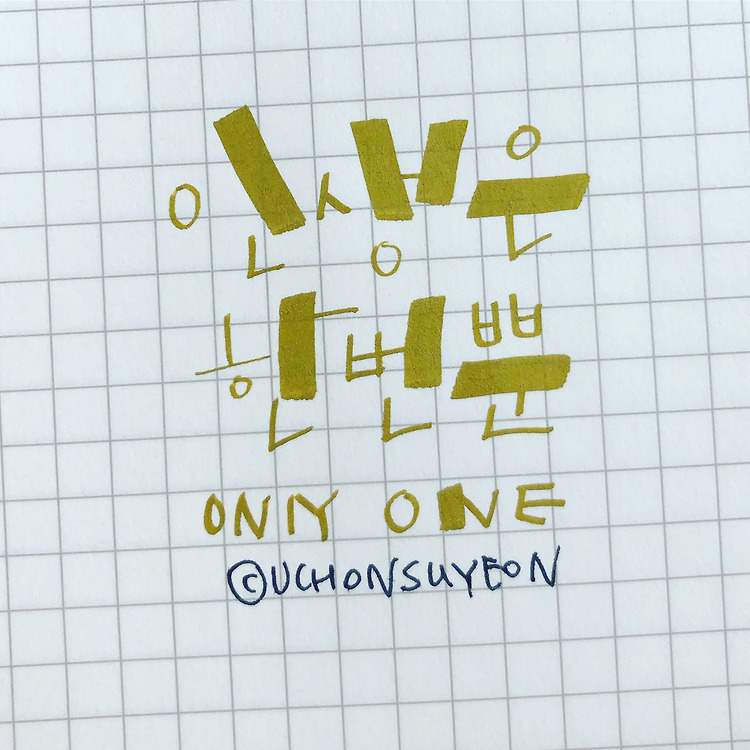 인생은
한번뿐
ONLY ONE
©UCHONSUYEON